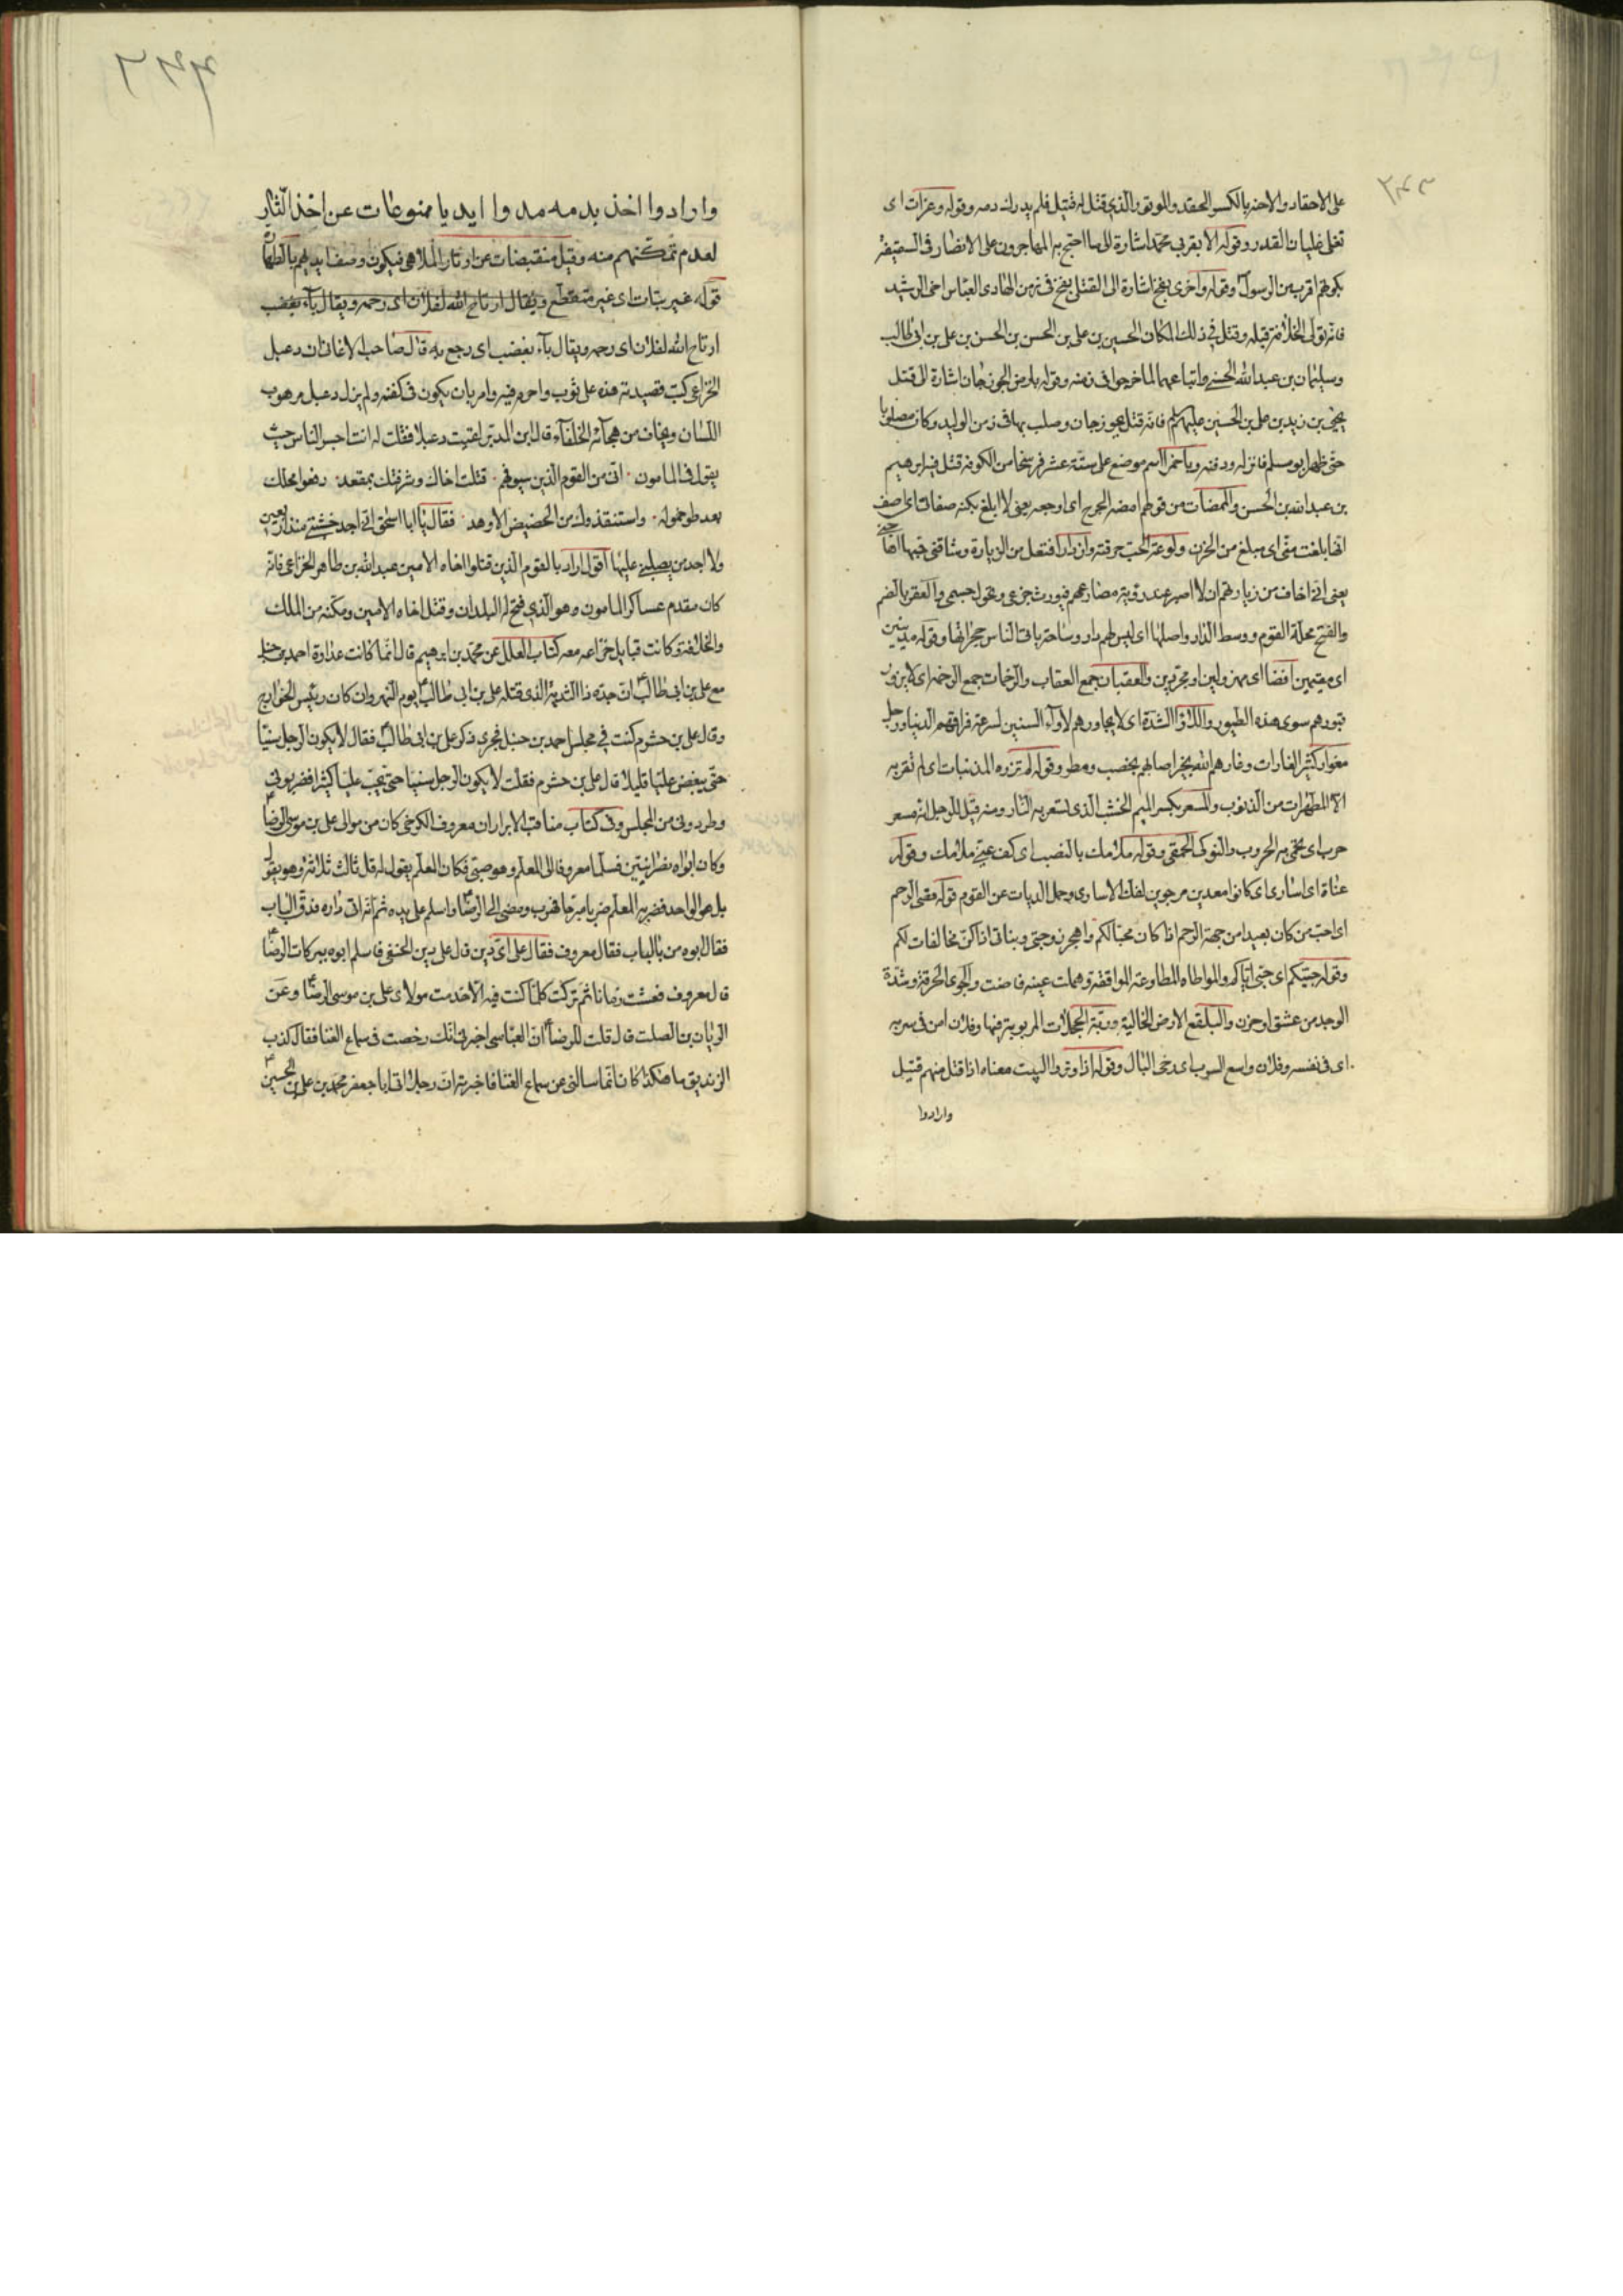 ٣٤٣
على الاحقاد والاحنه بالكسر الحقد والموتور الذي قتل له قتيل فلم يدرك دمه وقوله وغرات اى
تغلى غليان القدر وقوله الا بقربى محمد اشارة الى ما احتج به المهاجرون على الانصار فى السقيفة
بكونهم اقرب من الرسول وقوله واخرى بفخ اشارة الى القتلى بفخ فى زمن الهادى العباسى اخى الرشيد
فانه تولى الخلافة قبله وقتل فى ذلك المكان الحسين بن على بن الحسن بن الحسن بن على بن ابى طالب
وسليمان بن عبد الله الحسنى واتباعهما لما خرجوا فى زمنه وقوله بارض الجوزجان اشارة الى قتل
يحيى بن زيد بن على بن الحسين عليهم السلم فانه قتل بجوزجان وصلب بها فى زمن الوليد وكان مصلوبا
حتى ظهر ابو مسلم فانزله ودفنه وباخمرا اسم موضع على ستة عشر فرسخا من الكوفة قتل فيه ابرهيم
بن عبد الله بن الحسن والممضات من قولهم امضه الجرح اى اوجعه يعنى لا ابلغ بكنه صفاتى اى اصف
انها بلغت منى اى مبلغ من الحزن ولوعة الحب حرقته وان ازدار افتعل من الزيارة وشاقنى حبها
يعنى انى اخاف من زيارتهم ان لا اصبر عند رؤية مصارعهم فيورث جزعى ونحول جسمى والعقر بالضم
والفتح محلة القوم ووسط الدار واصلها اى ليس لهم دار وساحة باقة الناس حجراتها وقوله مدينين
اى مقيمين افضا اى مهزولين او مجردين والعقبان جمع العقاب والرخمات جمع الرخمه اى لا يزور
قبورهم سوى هذه الطيور واللأواء الشدة اى لا يجاورهم لأواء السنين لسرعة فراقهم الدنيا ورجل
مغوار كثير الغارات وغارهم الله بخير اصابهم بخصب ومطر وقوله لم تزره المذنبات اى لم تقربه
الا المطهرات من الذنوب والمسعر بكسر الميم الخشب الذى تسعر به النار ومنه قيل للرجل انه مسعر
حرب اى تحمى به الحروب والنوكى الحمقى وقوله ملامك بالنصب اى كف عنى ملامك وقوله
عناة اى اسارى اى كانوا معدين مرجوين لفك الاسارى وحمل الديات عن القوم قوله قصى الرحم
اى احب من كان بعيدا من جهة الرحم اذا كان محبا لكم واهجر زوجتى وبناتى اذا كن مخالفات لكم
وقوله حبيكم اى حبى اياكم والمواطاه المطاوعة الموافقة وهملت عينه فاضت والجوى الحرقة وشدة
الوجد من عشق او حزن والبلقع الارض الخالية وربة الحجلات المربوبة فيها وفلان امن فى سربه
اى فى نفسه وفلان واسع السرب اى رخى البال وقوله اذا وتروا البيت معناه اذا قتل منهم قتيل
وارادوا
٣٤٤
وارادوا اخذ بدمه مدوا ايديا ممنوعات عن اخذ الثار
لعدم تمكنهم منه وقيل منقبضات عن اوتار الملاهى فيكون وصفا يديهم بالطهارة
قوله غير بتات اى غير منقطع ويقال ارتاح الله لفلان اى رحمه ويقال باء بغضب
ارتاح الله لفلان اى رحمه ويقال باء بغضب اى رجع به قال صاحب الاغانى ان دعبل
الخزاعى كتب قصيدته هذه على ثوب واحرم فيه وامر بان يكون فى كفنه ولم يزل دعبل مرهوب
اللسان ويخاف من هجائه الخلفاء قال ابن المدبر لقيت دعبلا فقلت له انت اجسر الناس حيث
يقول فى المامون انى من القوم الذين سيوفهم قتلت اخاك وشرفتك بمقعد رفعوا محلك
بعد طول خموله واستنقذوك من الحضيض الاوهد فقال يا ابا اسحق انى احمل خشبتى منذ اربعين
ولا اجد من يصلبنى عليها اقول اراد بالقوم الذين قتلوا اخاه الامين عبد الله بن طاهر الخزاعى فانه
كان مقدم عساكر المامون وهو الذى فتح له البلدان وقتل اخاه الامين ومكنه من الملك
والخلافة وكانت قبايل خزاعه معه كتاب العلل عن محمد بن ابرهيم قال انما كانت عداوة احمد بن حنبل
مع على بن ابى طالب ان جده ذا الثدية الذى قتله على بن ابى طالب يوم النهروان كان رئيس الخوارج
وقال على بن حشرم كنت فى مجلس احمد بن حنبل فجرى ذكر على بن ابى طالب فقال لا يكون الرجل سنيا
حتى يبغض عليا قليلا قال على بن حشرم فقلت لا يكون الرجل سنيا حتى يحب عليا كثيرا فضربونى
وطردونى من المجلس وفى كتاب مناقب الابرار ان معروف الكرخى كان من موالى على بن موسى الرضا
وكان ابواه نصرانيتين فسلما معروفا الى المعلم وهو صبى فكان المعلم يقول له قل ثالث ثلاثة وهو يقول
بل هو الواحد فضربه المعلم ضربا مبرحا فهرب ومضى الى الرضا واسلم على يده ثم انه اتى داره فدق الباب
فقال ابوه من بالباب فقال معروف فقال على اى دين قال على دين الحنفى فاسلم ابوه ببركات الرضا
قال معروف فعشت زمانا ثم تركت كلما كنت فيه الا خدمت مولاى على بن موسى الرضا وعن
الريان بن الصلت قال قلت للرضا ان العباسى اخبرنى انك رخصت فى سماع الغنا فقال كذب
الزنديق ما هكذا كان انما سالنى عن سماع الغنا فاخبرته ان رجلا اتى ابا جعفر محمد بن على بن الحسين